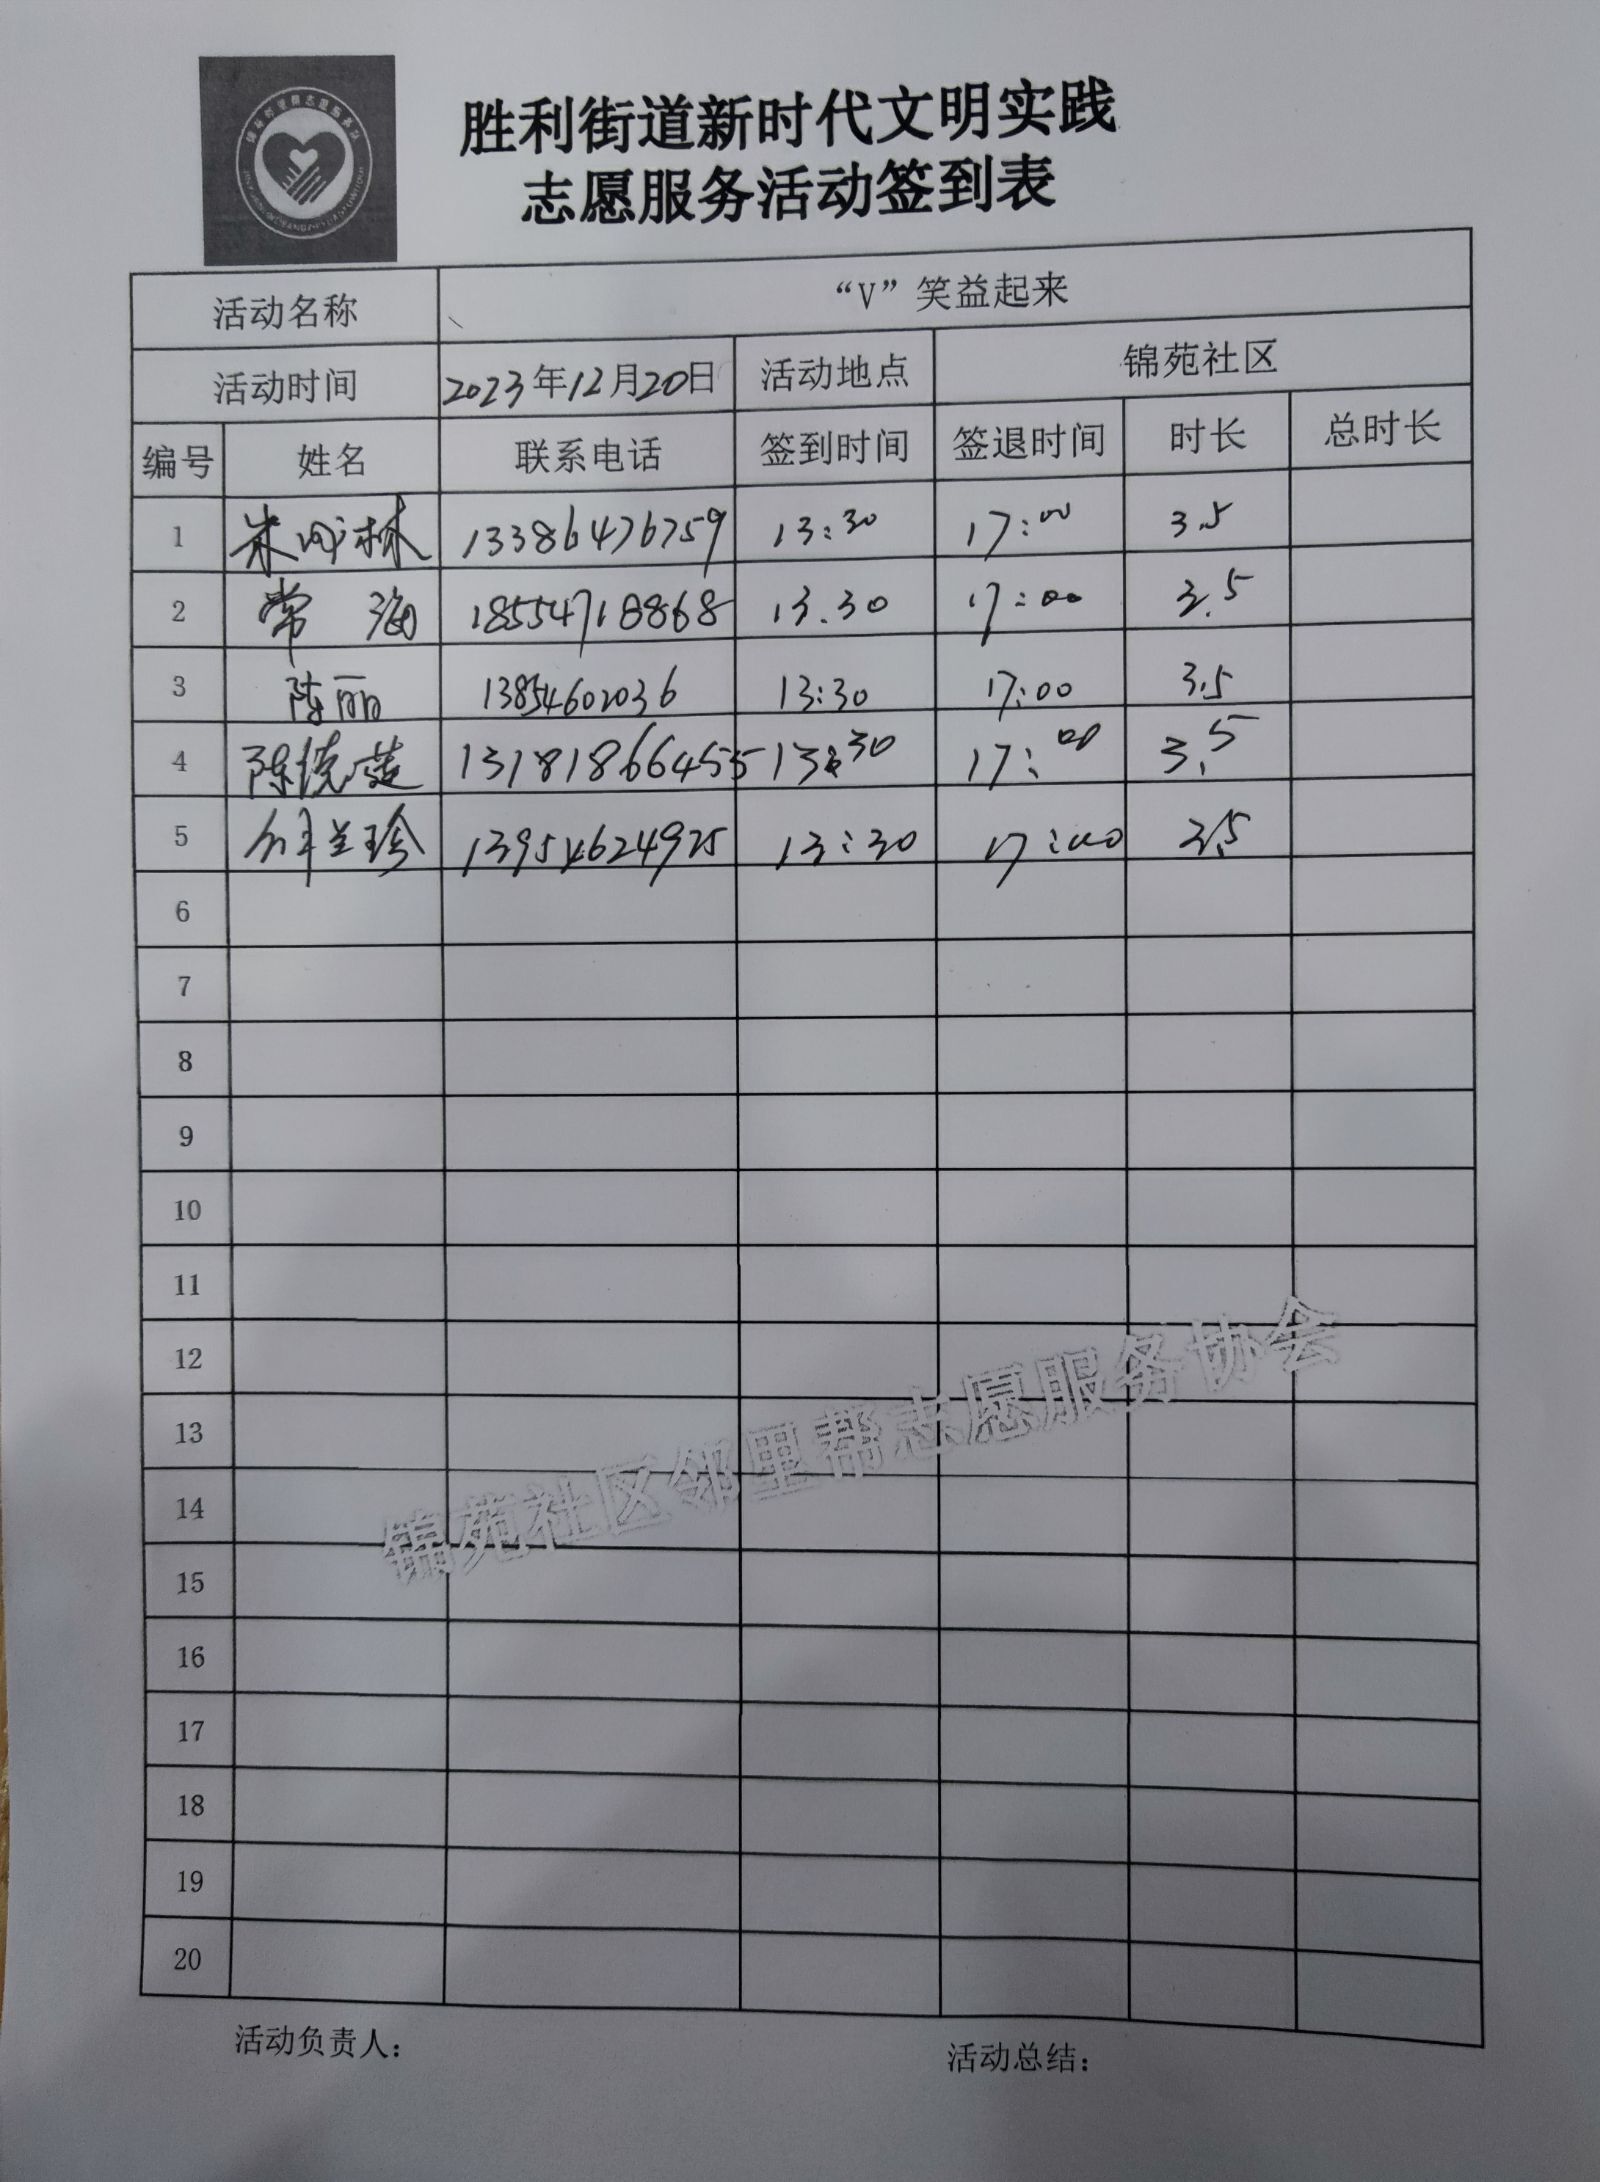 胜利街道新时代文明实践
志愿服务活动签到表
活动名称 “V”笑益起来
活动时间 2023年12月20日 活动地点 锦苑社区
编号 姓名 联系电话 签到时间 签退时间 时长 总时长
1 13386476759 13:30 17:00 3.5
2 常海 18554718868 13.30 17:00 3.5
3 陈丽 13854602036 13:30 17:00 3.5
4 13181866455 13:30 17:00 3.5
5 13954624925 13:30 17:00 3.5
6
7
8
9
10
11
12
13
14
15
16
17
18
19
20
锦苑社区邻里帮志愿服务协会
活动负责人: 活动总结: